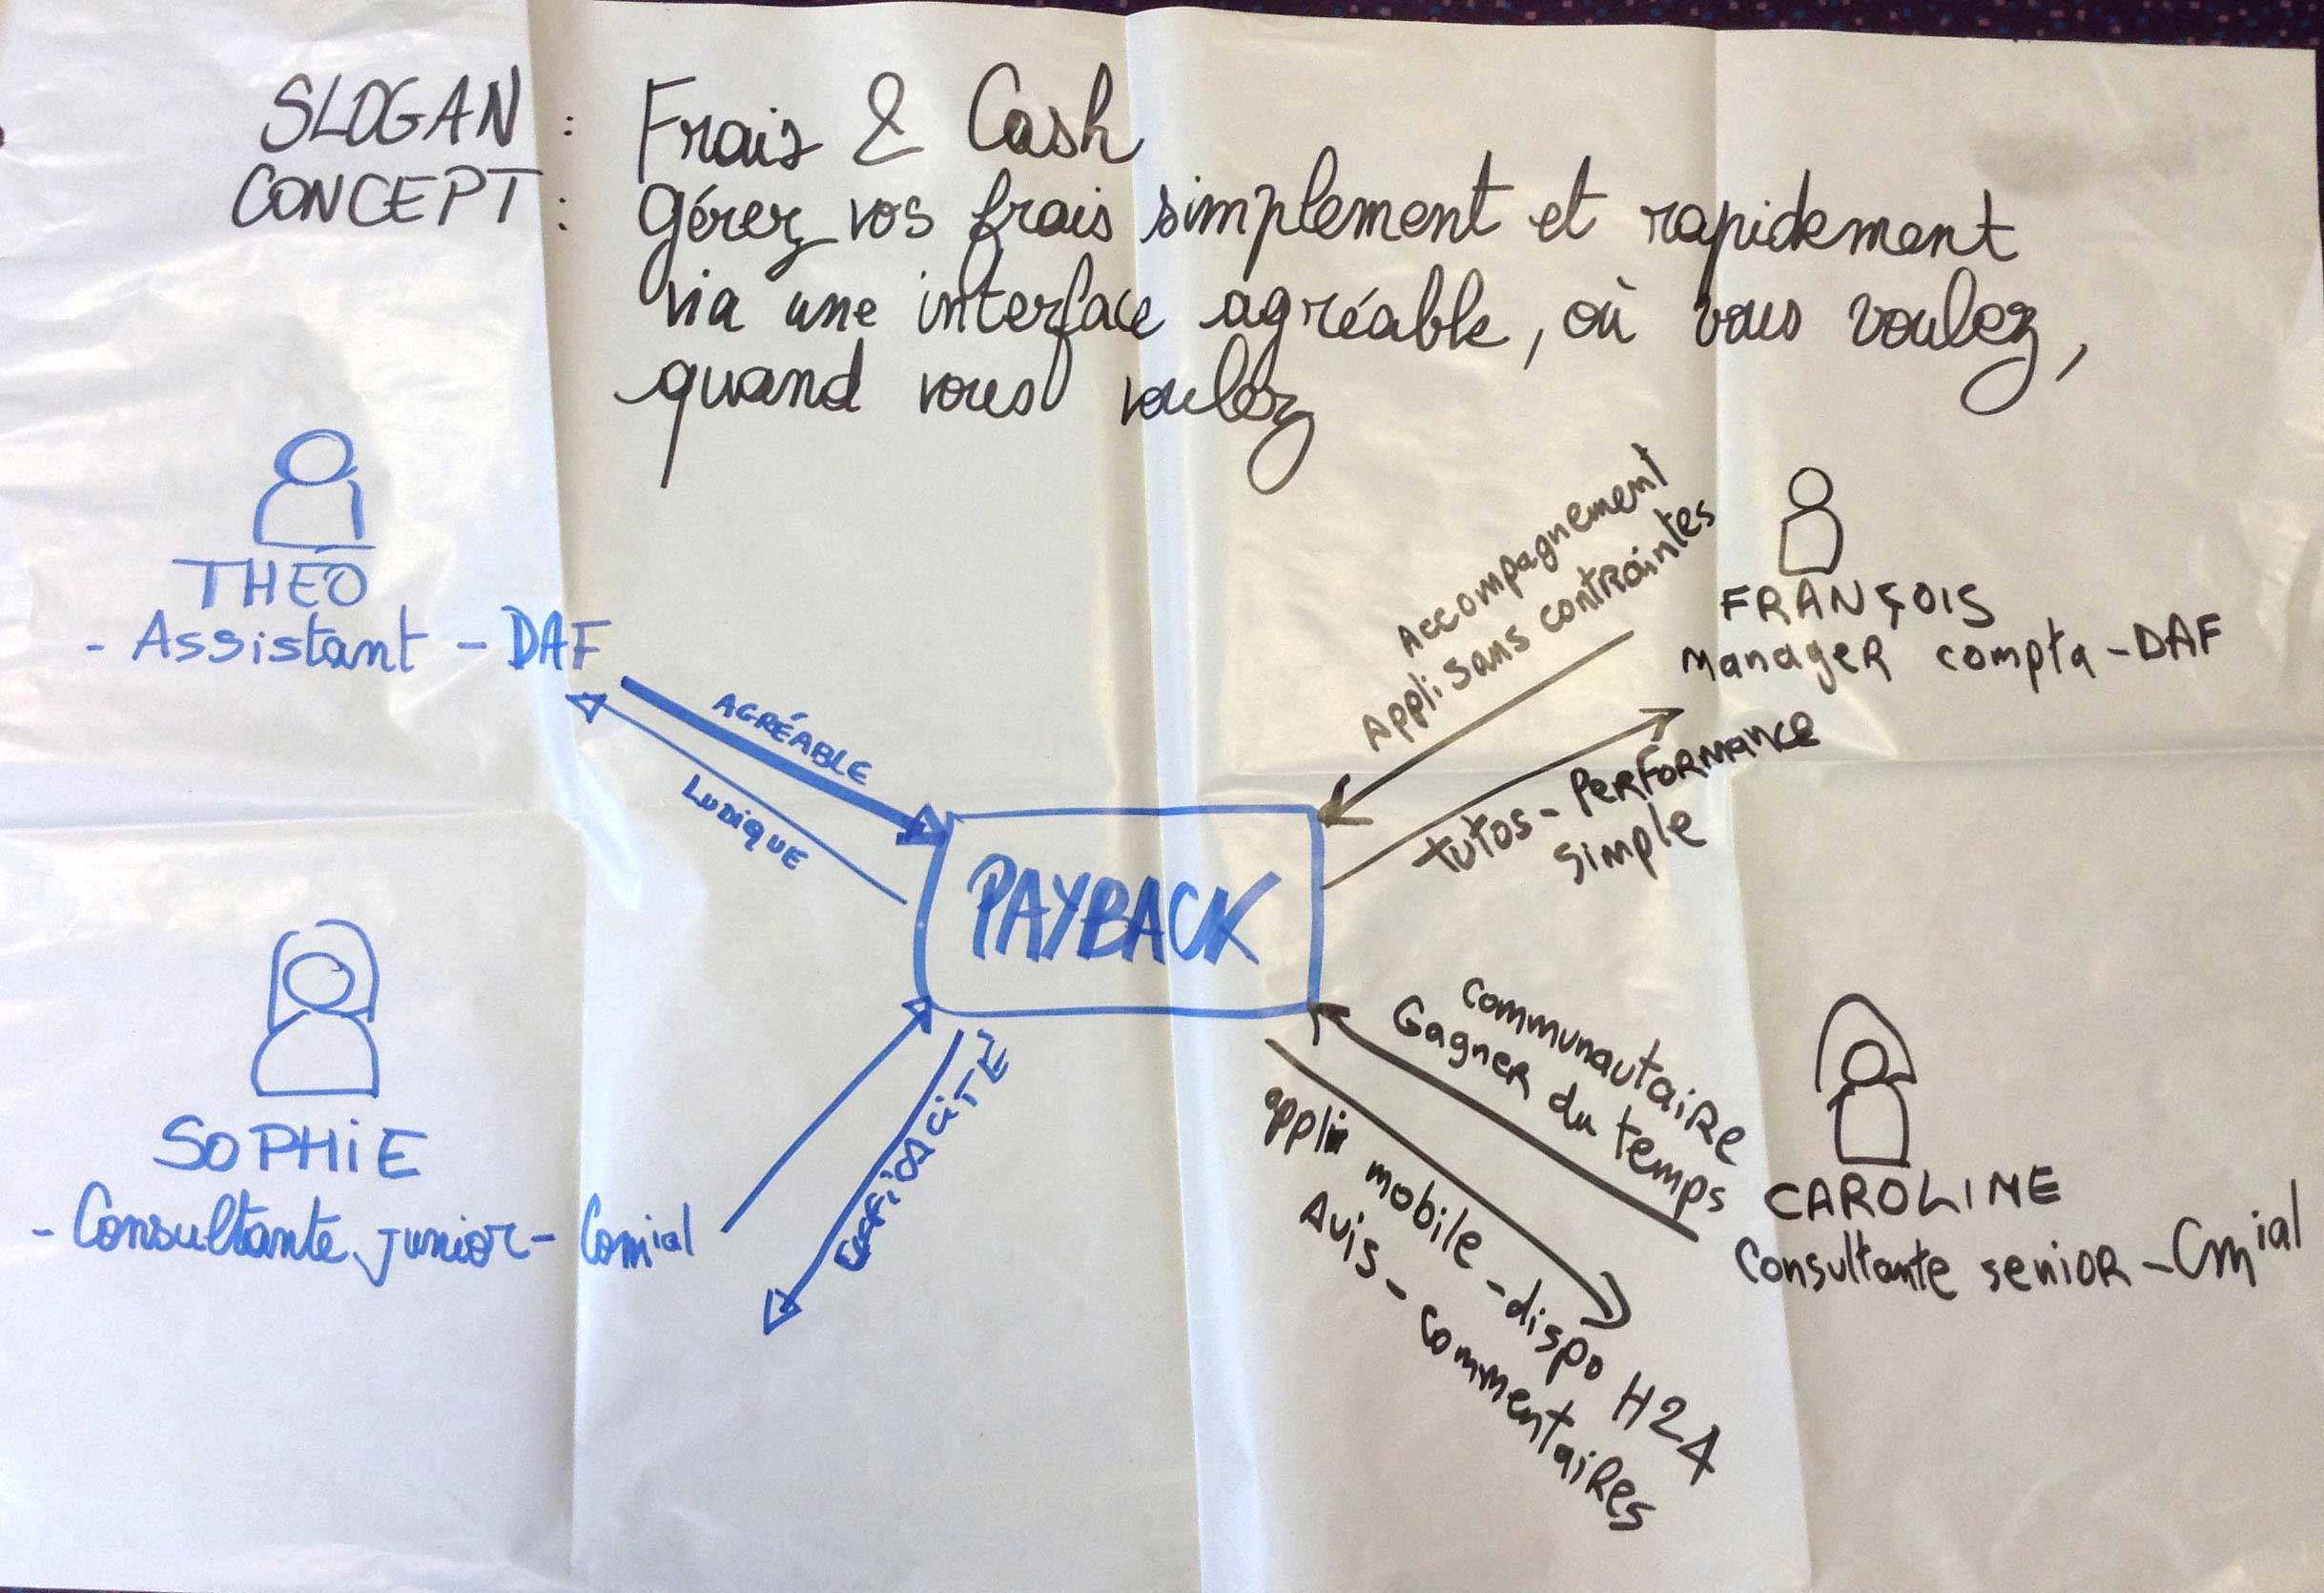 SLOGAN : Frais & Cash
CONCEPT : Gérez vos frais simplement et rapidement
via une interface agréable, où vous voulez,
quand vous voulez
THÉO
- Assistant - DAF
AGRÉABLE
LUDIQUE
Accompagnement
Appli sans contraintes
FRANÇOIS
Manager compta - DAF
tutos - Performance
simple
PAYBACK
SOPHIE
- Consultante junior - Comial
communautaire
Gagner du temps
appli mobile - dispo H24
Avis - commentaires
CAROLINE
Consultante senior - Cmial